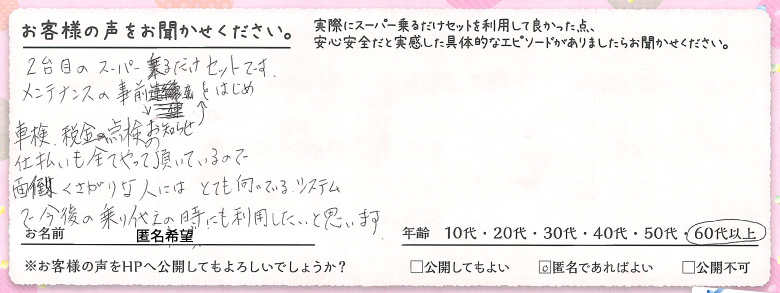 お客様の声をお聞かせください。
実際にスーパー乗るだけセットを利用して良かった点、
安心安全だと実感した具体的なエピソードがありましたらお聞かせください。
2台目のスーパー乗るだけセットです。
メンテナンスの事前をはじめ
お知らせ
車検、税金、点検の
仕払いも全てやって頂いているので
面倒くさがりな人にはとても向いているシステム
で今後の乗り代えの時にも利用したいと思います
お名前 匿名希望
年齢 10代・20代・30代・40代・50代・60代以上
※お客様の声をHPへ公開してもよろしいでしょうか?
□公開してもよい ☑匿名であればよい □公開不可